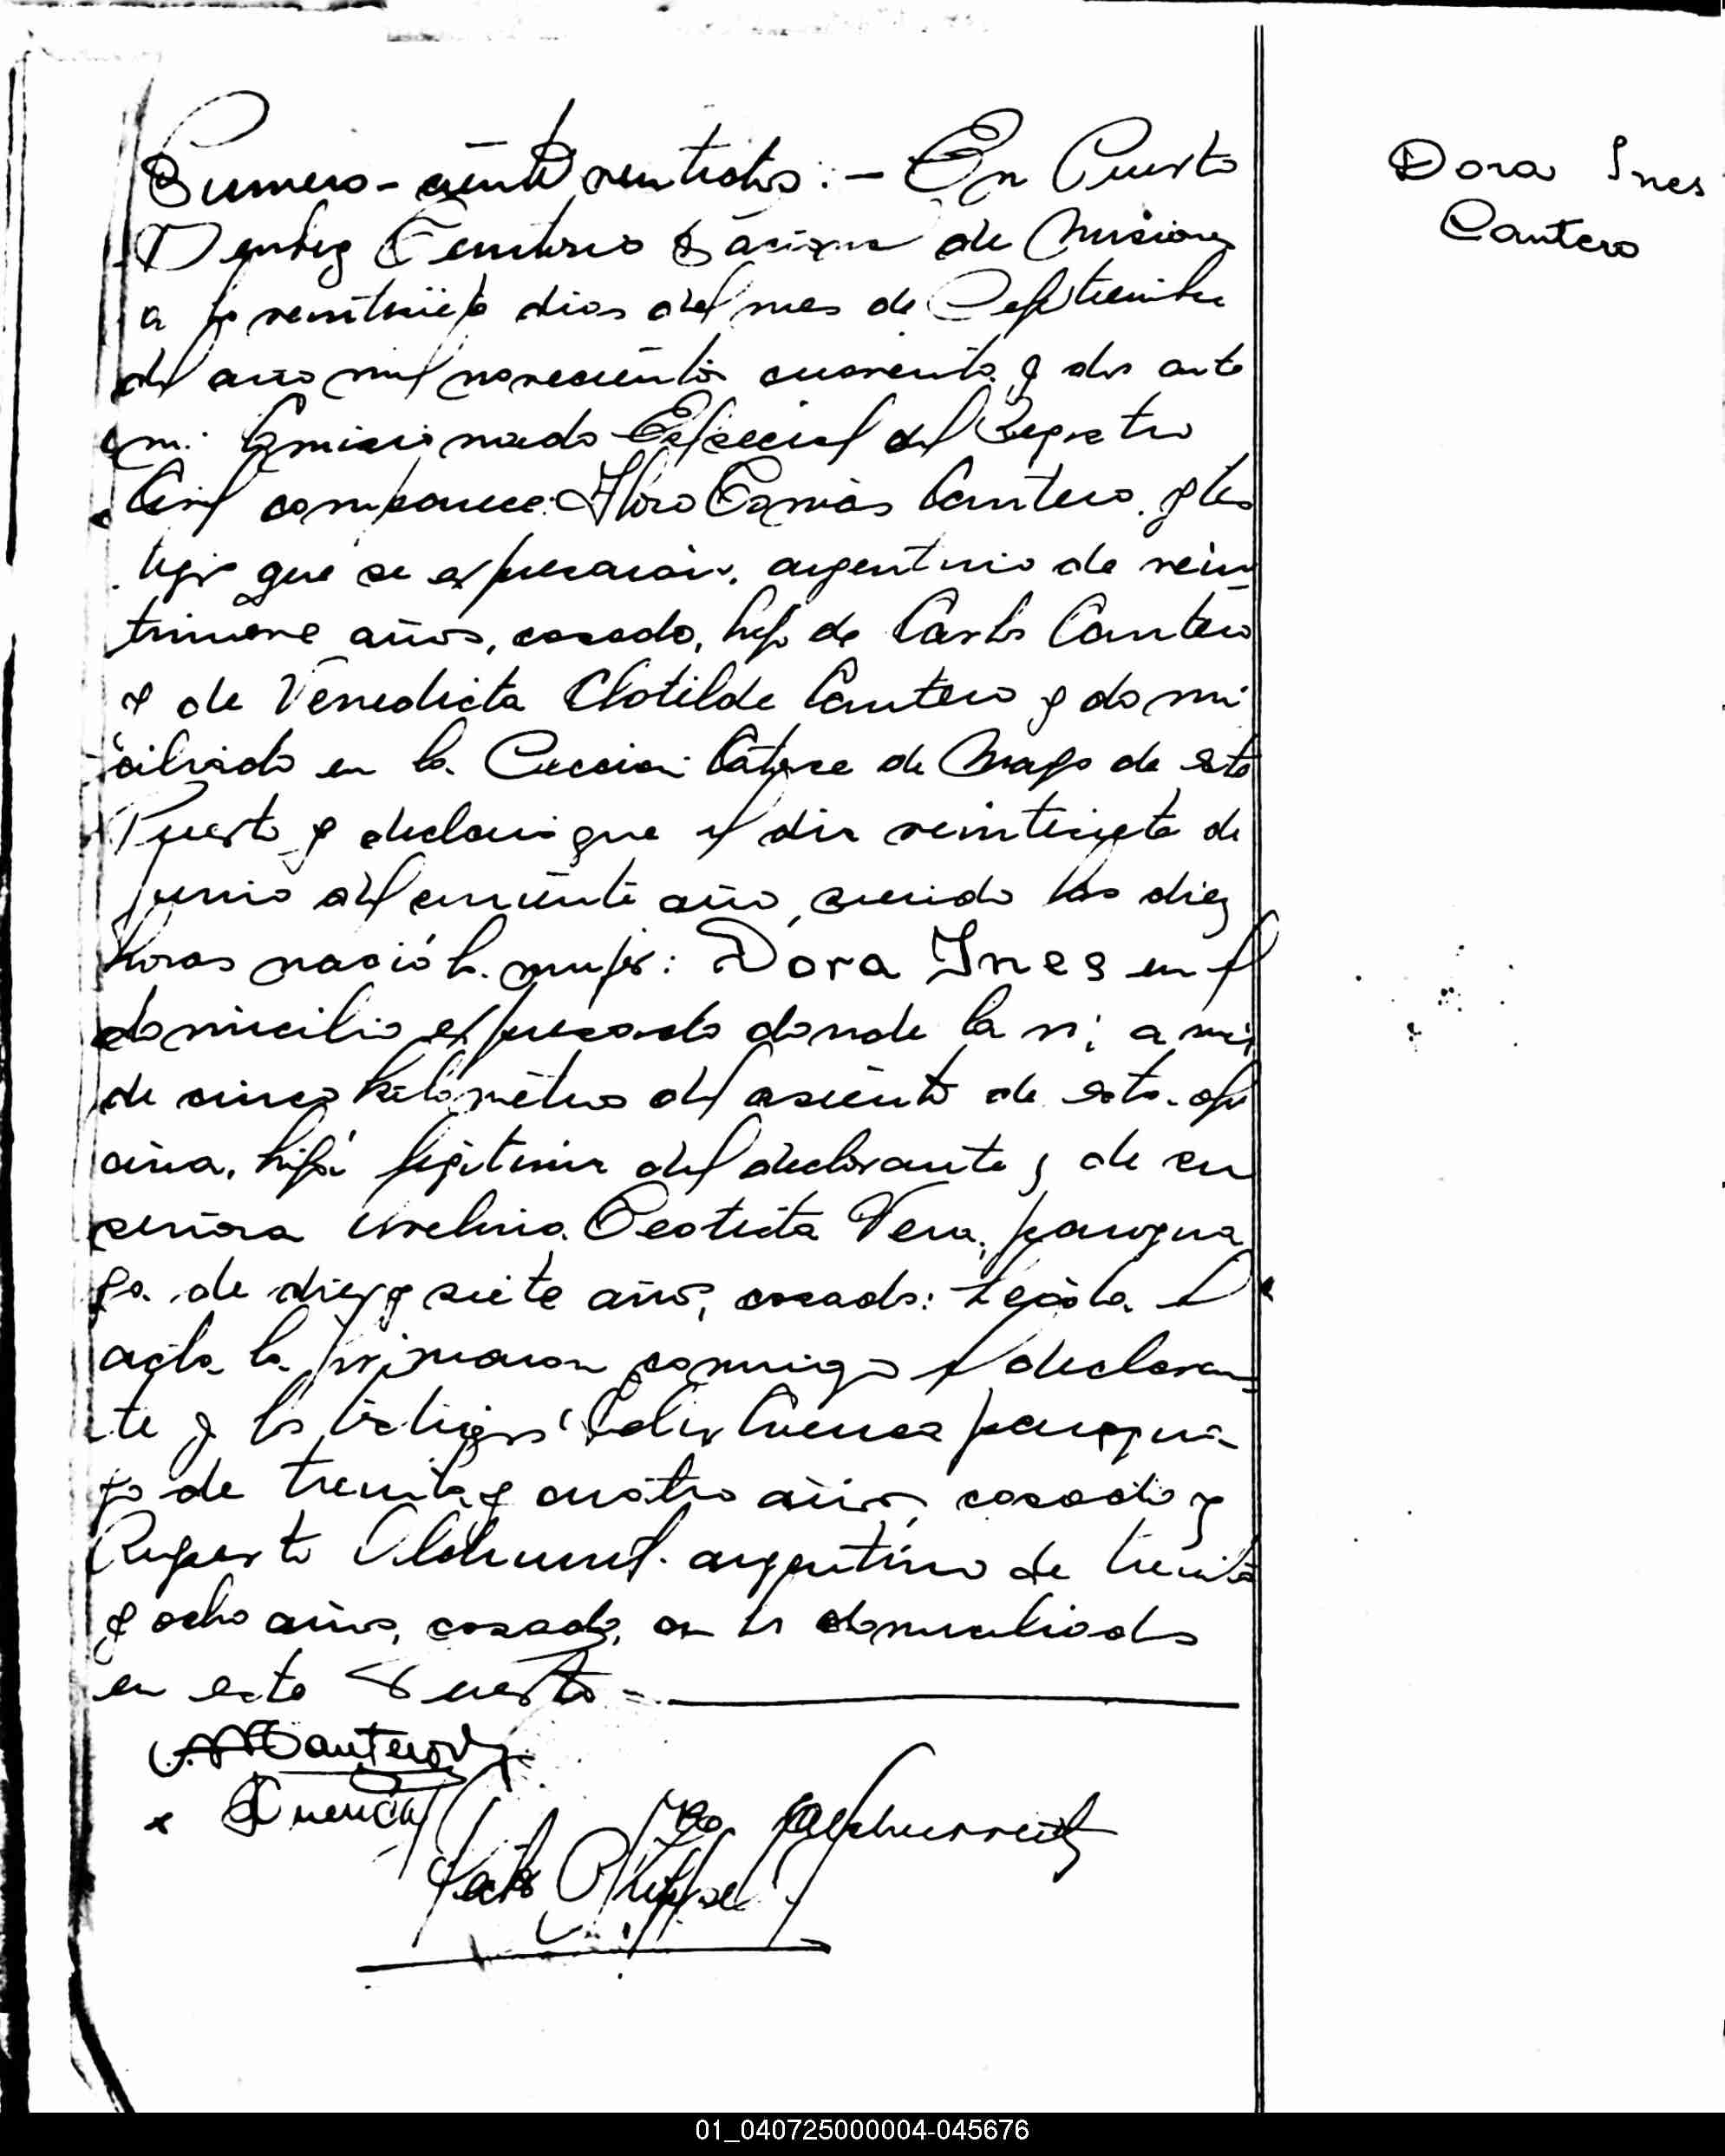 Numero - ciento veintidos: - En Puerto
Territorio Nacional de Misiones
a los veintisiete dias del mes de Septiembre
del año mil novecientos cuarenta y dos ante
mi Comisionado Especial del Registro
Civil comparece: Cantero. y tes
tigos que se expresarán, argentino de vein
tinueve años, casado, hijo de Carlos Cantero
y de Venedicta Clotilde Cantero y domi
ciliado en la Seccion Catorce de Mayo de este
Puerto y declaró que el dia veintisiete de
junio del corriente año, siendo las diez
horas nació la mujer: Dora Ines en el
domicilio expresado donde la vi, a más
de cinco kilometros del asiento de esta ofi
cina, hija legitima del declarante y de su
señora Vera, paragua
ya de diez y siete años, casada: Leida el
acta la firmaron conmigo el declaran
te y los testigos: Cuenca paragua
yo de treinta y cuatro años, casado y
Ruperto argentino de treinta
y ocho años, casado, domiciliados
en este Puerto =
Cantero
x Cuenca
Dora Ines
Cantero
01_040725000004-045676